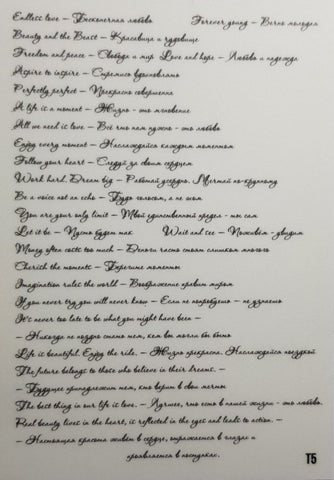 Endless love – Бесконечная любовь Forever young – Вечно молодая
Beauty and the Beast – Красавица и чудовище
Freedom and peace – Свобода и мир Love and hope – Любовь и надежда
Aspire to inspire – Стремись вдохновлять
Perfectly perfect – Прекрасно совершенна
A life is a moment – Жизнь - это мгновение
All we need it love – Всё что нам нужно - это любовь
Enjoy every moment – Наслаждайся каждым моментом
Follow your heart – Следуй за своим сердцем
Work hard. Dream big – Работай усердно. Мечтай по-крупному
Be a voice not an echo – Будь голосом, а не эхом
You are your only limit – Твой единственный предел - ты сам
Let it be – Пусть будет так Wait and see – Поживём - увидим
Money often costs too much – Деньги часто стоят слишком много
Cherish the moments – Берегите моменты
Imagination rules the world – Воображение правит миром
If you never try you will never know – Если не попробуешь – не узнаешь
It's never too late to be what you might have been –
– Никогда не поздно стать тем, кем вы могли бы быть
Life is beautiful. Enjoy the ride. – Жизнь прекрасна. Наслаждайся поездкой
The future belongs to those who believe in their dreams. –
– Будущее принадлежит тем, кто верит в свои мечты
The best thing in our life is love. – Лучшее, что есть в нашей жизни - это любовь.
Real beauty lives in the heart, it reflected in the eyes and leads to action. –
– Настоящая красота живёт в сердце, отражается в глазах и
проявляется в поступках.
T5